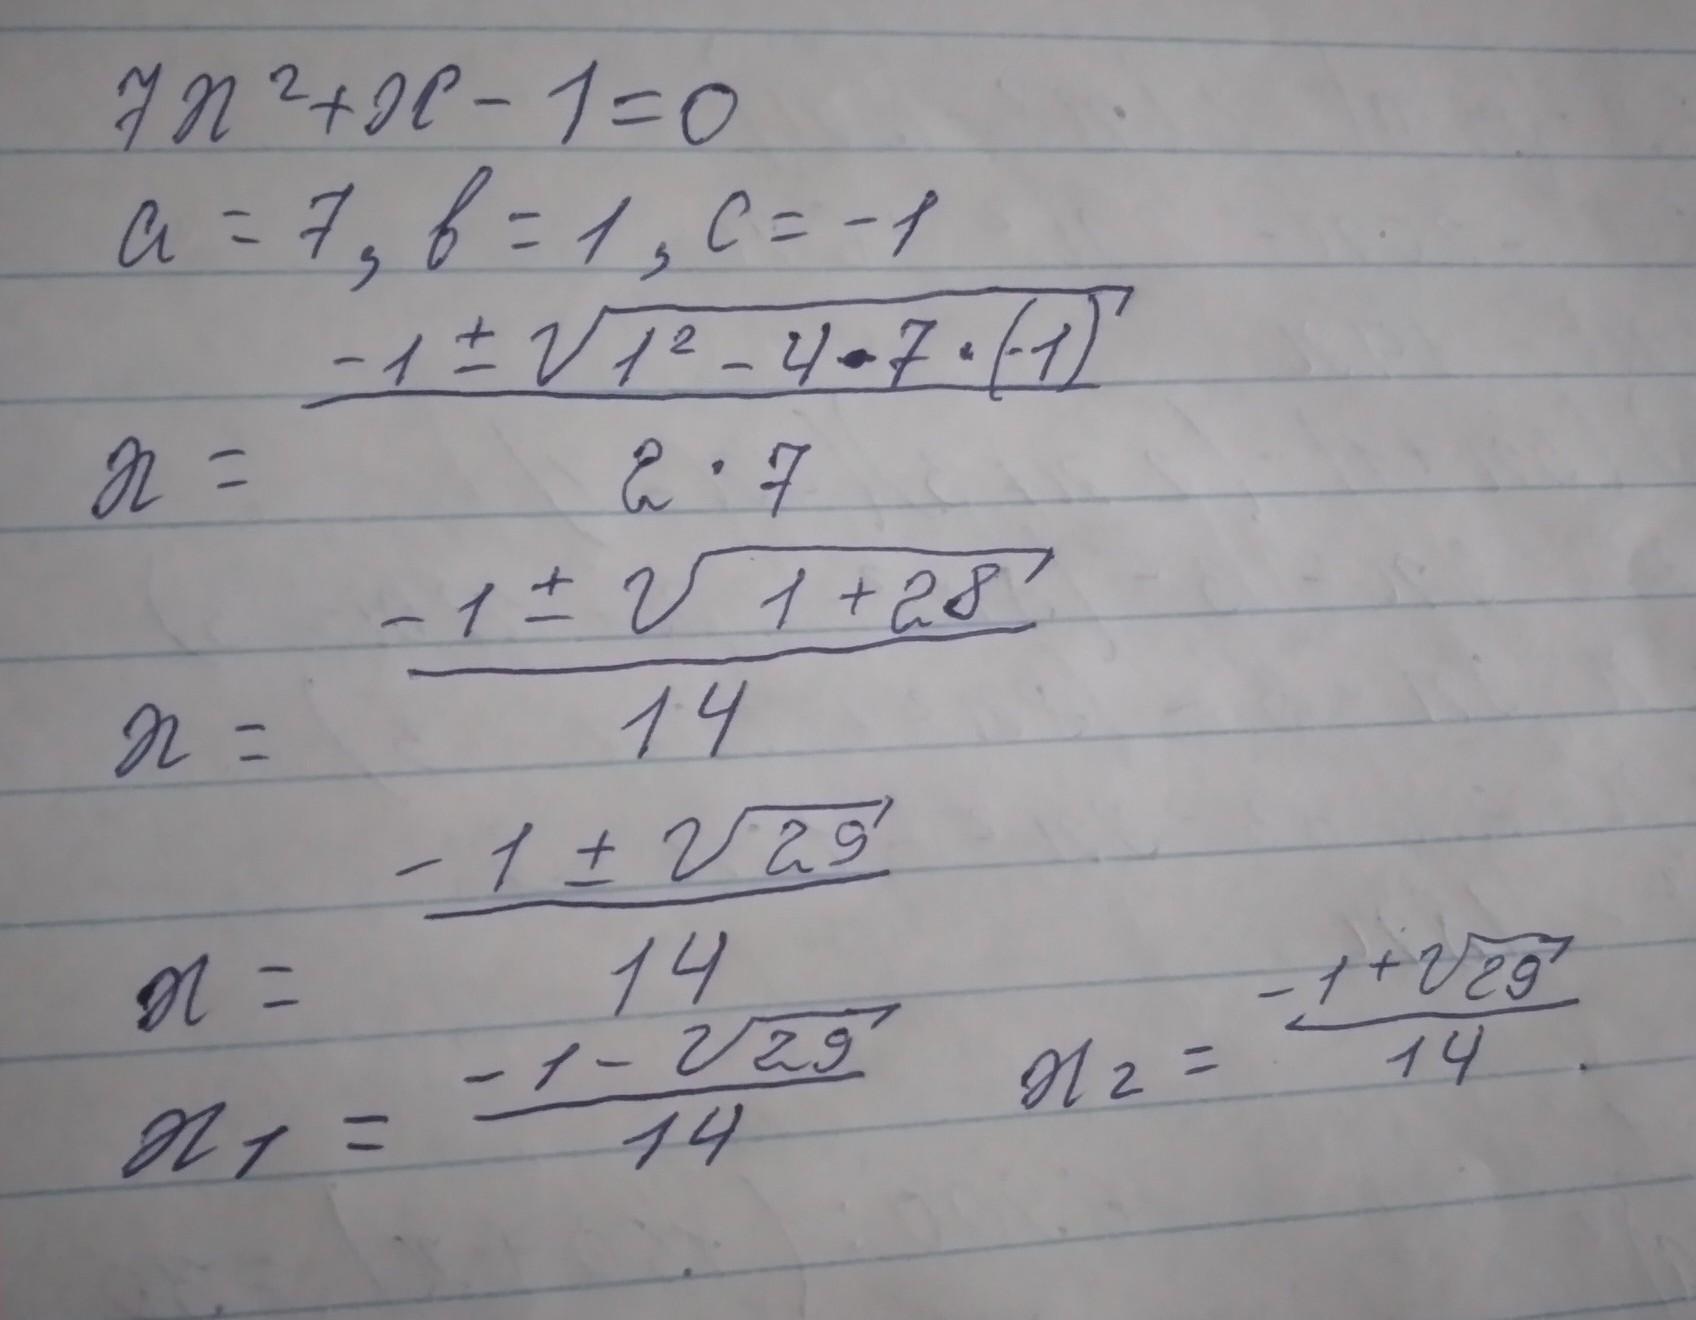 7x² + x - 1 = 0
a = 7, b = 1, c = -1
x = (-1 ± √(1² - 4 · 7 · (-1))) / (2 · 7)
x = (-1 ± √(1 + 28)) / 14
x = (-1 ± √29) / 14
x₁ = (-1 - √29) / 14 x₂ = (-1 + √29) / 14.